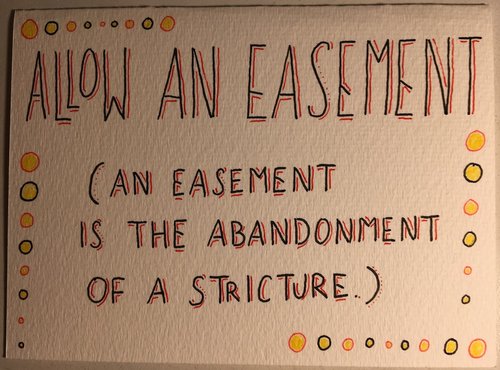 ALLOW AN EASEMENT
(AN EASEMENT
IS THE ABANDONMENT
OF A STRICTURE.)